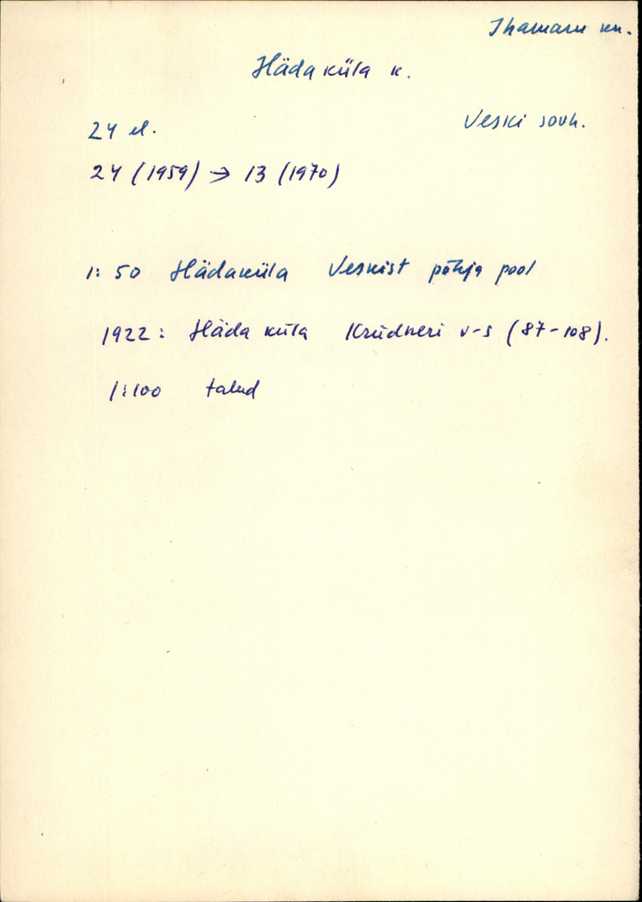 Ihamaru kn.
Häda küla k.
24 el.
Veski sovh.
24 (1959) → 13 (1970)
1: 50 Hädaküla Veskist põhja pool
1922: Häda küla Krüdneri v-s (87-108).
1:100 talud